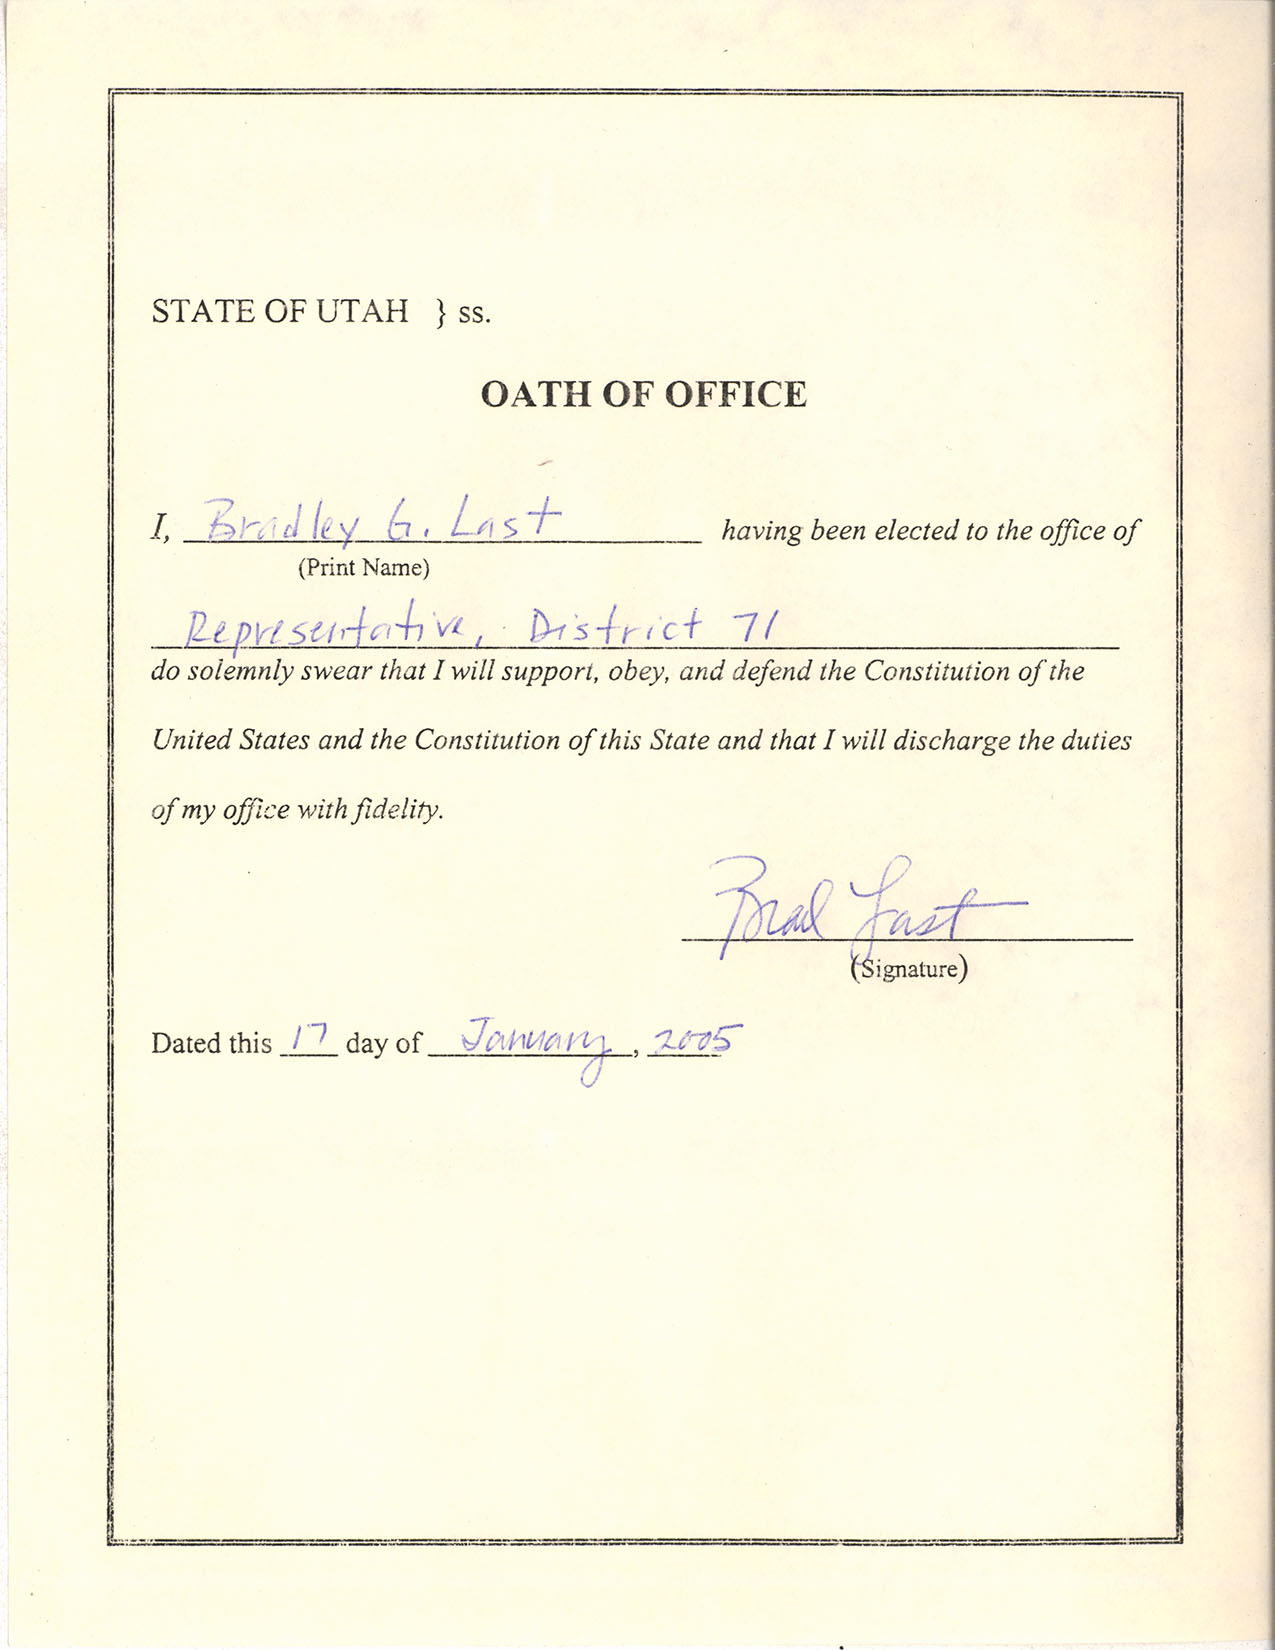 STATE OF UTAH } ss.
OATH OF OFFICE
I, Bradley G. Last having been elected to the office of
(Print Name)
Representative, District 71
do solemnly swear that I will support, obey, and defend the Constitution of the
United States and the Constitution of this State and that I will discharge the duties
of my office with fidelity.
Brad Last
(Signature)
Dated this 17 day of January, 2005